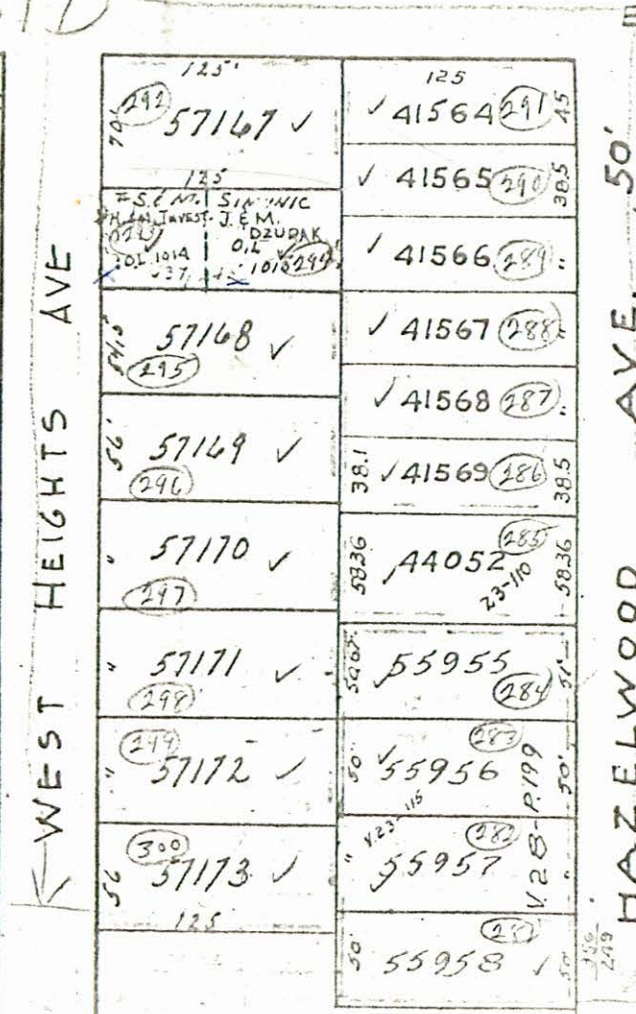 WEST HEIGHTS AVE
125'
292
57167 ✓
125
S. & M.
INVEST.
O.L. 1014
37
SIMUNIC
J. & M.
DZURAK
O.L. ✓
1015 294
57168 ✓
295
56' 57169 ✓
296
" 57170 ✓
297
" 57171 ✓
298
299
" 57172 ✓
300
56 57173 ✓
125
125
✓ 41564 291 45
✓ 41565 290 38.5
✓ 41566 289 "
✓ 41567 288 "
✓ 41568 287 "
38.1 ✓ 41569 286 38.5
285
58.36 ✓ 44052 58.36
23-110
✓ 55955 51'
284
283
50' ✓ 55956 50'
V.23-115
282
" ✓ 55957 "
V.28-P.199
50' 55958 ✓ 50'
HAZELWOOD AVE. 50'